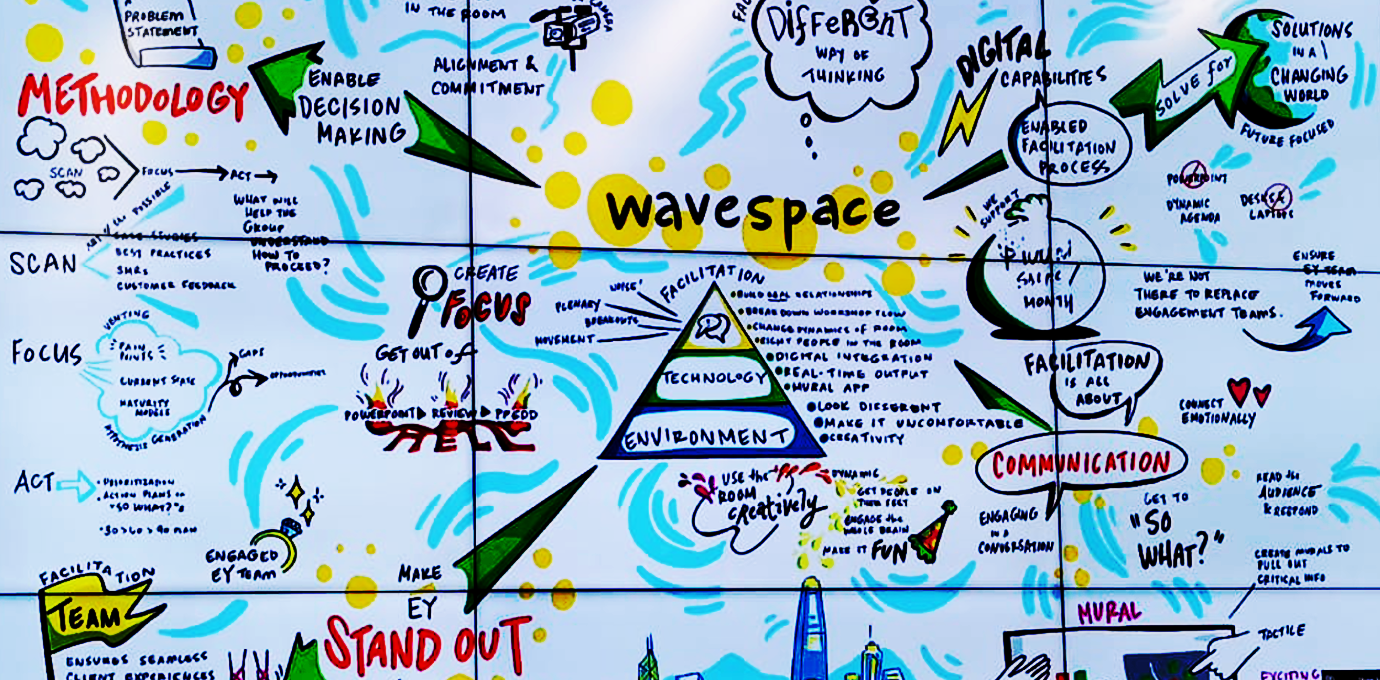 PROBLEM
STATEMENT
IN THE ROOM
ALIGNMENT &
COMMITMENT
METHODOLOGY
ENABLE
DECISION
MAKING
SCAN
FOCUS
ACT
WHAT WILL
HELP THE
GROUP
UNDERSTAND
HOW TO
PROCEED?
SCAN
POSSIBLE
CASE STUDIES
BEST PRACTICES
SMRs
CUSTOMER FEEDBACK
FOCUS
VENTING
PAIN
POINTS
CURRENT STATE
MATURITY
MODELS
HYPOTHESIS GENERATION
GAPS
OPPORTUNITIES
ACT
PRIORITIZATION
ACTION PLANS
"SO WHAT?"
30 > 60 > 90 PLAN
ENGAGED
EY TEAM
FACILITATION
TEAM
ENSURES SEAMLESS
CLIENT EXPERIENCES
CREATE
FOCUS
GET OUT of
POWERPOINT
REVIEW
MAKE
EY
STAND OUT
DIFFERENT
WAY OF
THINKING
wavespace
FACILITATION
VOICE
PLENARY
BREAKOUTS
MOVEMENT
TECHNOLOGY
ENVIRONMENT
BUILD REAL RELATIONSHIPS
BREAKDOWN WORKSHOP FLOW
CHANGE DYNAMICS OF ROOM
RIGHT PEOPLE IN THE ROOM
DIGITAL INTEGRATION
REAL-TIME OUTPUT
MURAL APP
LOOK DIFFERENT
MAKE IT UNCOMFORTABLE
CREATIVITY
USE the
ROOM
CREATIVELY
DYNAMIC
GET PEOPLE ON
THEIR FEET
ENGAGE the
WHOLE BRAIN
MAKE IT FUN
DIGITAL
CAPABILITIES
ENABLED
FACILITATION
PROCESS
SOLVE for
SOLUTIONS
IN A
CHANGING
WORLD
FUTURE FOCUSED
POWERPOINT
DYNAMIC
AGENDA
DESKS &
LAPTOPS
WE
SUPPORT
MONTH
WE'RE NOT
THERE TO REPLACE
ENGAGEMENT TEAMS.
ENSURE
EY TEAM
MOVES
FORWARD
FACILITATION
IS ALL
ABOUT
CONNECT
EMOTIONALLY
COMMUNICATION
ENGAGING
IN A
CONVERSATION
GET TO
"SO
WHAT?"
READ the
AUDIENCE
& RESPOND
CREATE MURALS TO
PULL OUT
CRITICAL INFO
MURAL
TACTILE
EXCITING